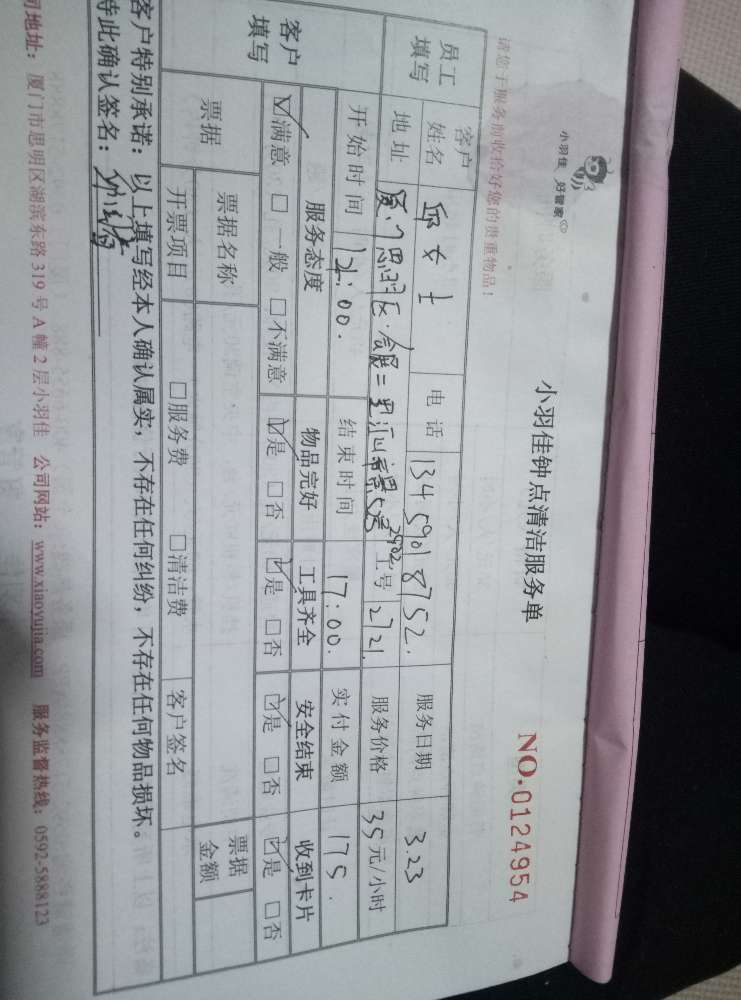 小羽佳 好管家
小羽佳钟点清洁服务单
NO.0124954
请您于服务前收拾好您的贵重物品！
员工填写 客户姓名 邱女士 电话 134 5901 8752. 服务日期 3.23
地址 厦门思明区 二里 2902 工号 2721. 服务价格 35元/小时
开始时间 12:00. 结束时间 17:00. 实付金额 175.
客户填写 服务态度 物品完好 工具齐全 安全结束 收到卡片
☑满意 □一般 □不满意 ☑是 □否 ☑是 □否 ☑是 □否 ☑是 □否
票据 票据名称 票据金额
开票项目 □服务费 □清洁费 客户签名
客户特别承诺：以上填写经本人确认属实，不存在任何纠纷，不存在任何物品损坏。
特此确认签名：
司地址：厦门市思明区湖滨东路319号A幢2层小羽佳 公司网站：www.xiaoyujia.com 服务监督热线：0592-5888123